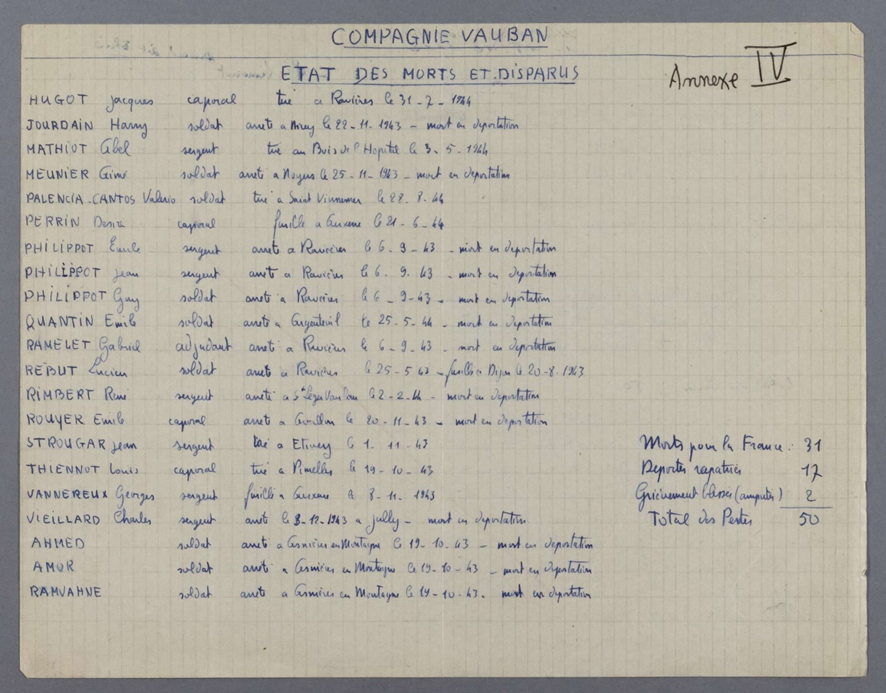 COMPAGNIE VAUBAN
ETAT DES MORTS ET DISPARUS
Annexe IV
HUGOT Jacques caporal tué a Ravières le 31-7-1944
JOURDAIN Harry soldat arreté a le 22-11-1943 - mort en deportation
MATHIOT Abel sergent tué au Bois de l'Hopital le 3-5-1944
MEUNIER soldat arreté a Noyers le 25-11-1943 - mort en deportation
PALENCIA-CANTOS Valerio soldat tué a Saint Vinnemer le 28-8-44
PERRIN caporal fusillé a Auxerre le 21-6-44
PHILIPPOT Emile sergent arreté a Ravières le 6-9-43 - mort en deportation
PHILIPPOT Jean sergent arreté a Ravières le 6-9-43 - mort en deportation
PHILIPPOT Guy soldat arreté a Ravières le 6-9-43 - mort en deportation
QUANTIN Emile soldat arreté a Argenteuil le 25-5-44 - mort en deportation
RAMELET Gabriel adjudant arreté a Ravières le 6-9-43 - mort en deportation
REBUT Lucien soldat arreté a Ravières le 25-5-43 - fusillé a Dijon le 20-8-1943
RIMBERT René sergent arreté a St Léger Vauban le 2-2-44 - mort en deportation
ROUYER Emile caporal arreté a le 20-11-43 - mort en deportation
STROUGAR Jean sergent tué a Etivey le 1-11-43
THIENNOT Louis caporal tué a Pimelles le 19-10-43
VANNEREUX Georges sergent fusillé a Auxerre le 8-11-1943
VIEILLARD Charles sergent arreté le 8-12-1943 a Jully - mort en deportation
AHMED soldat arreté a Asnières en Montagne le 19-10-43 - mort en deportation
AMOR soldat arreté a Asnières en Montagne le 19-10-43 - mort en deportation
RAMVAHNE soldat arreté a Asnières en Montagne le 19-10-43 - mort en deportation
Morts pour la France : 31
Deportés rapatriés 17
Grièvement blessés (amputés) 2
Total des Pertes 50